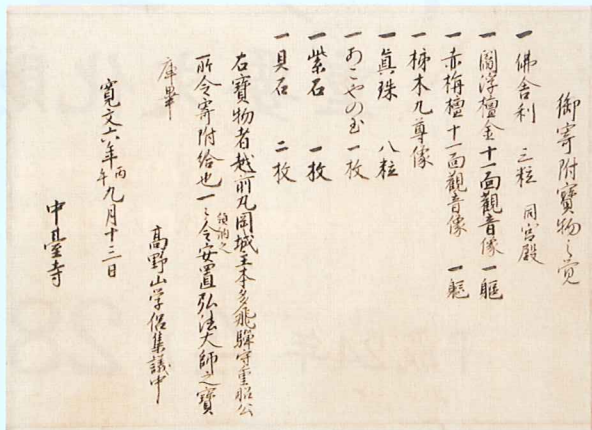 御寄附寳物之覚
一 佛舎利 三粒 同宮殿
一 閻浮檀金十一面觀音像 一軀
一 赤栴檀十一面觀音像 一軀
一 柿木九尊像
一 眞珠 八粒
一 あこやの玉 一枚
一 紫石 一枚
一 貝石 二枚
右寳物者越前丸岡城主本多飛騨守重昭公
所令寄附給也一々領納之令安置弘法大師之寳
庫畢
高野山学侶集議中
寛文六年丙午九月十三日
中𦾔寺